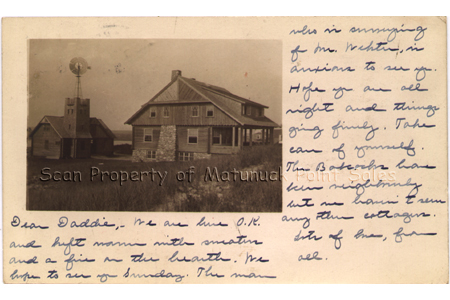 Scan Property of Matunuck Point Sales
Dear Daddie,- We are here O.K.
and kept warm with sweaters
and a fire on the hearth. We
hope to see you Sunday. The man
who is surveying
of Mr. is
anxious to see you.
Hope you are all
right and things
going finely. Take
care of yourself.
The Babcocks have
been neighborly
but we haven't seen
any other cottagers.
Lots of love, from
all.